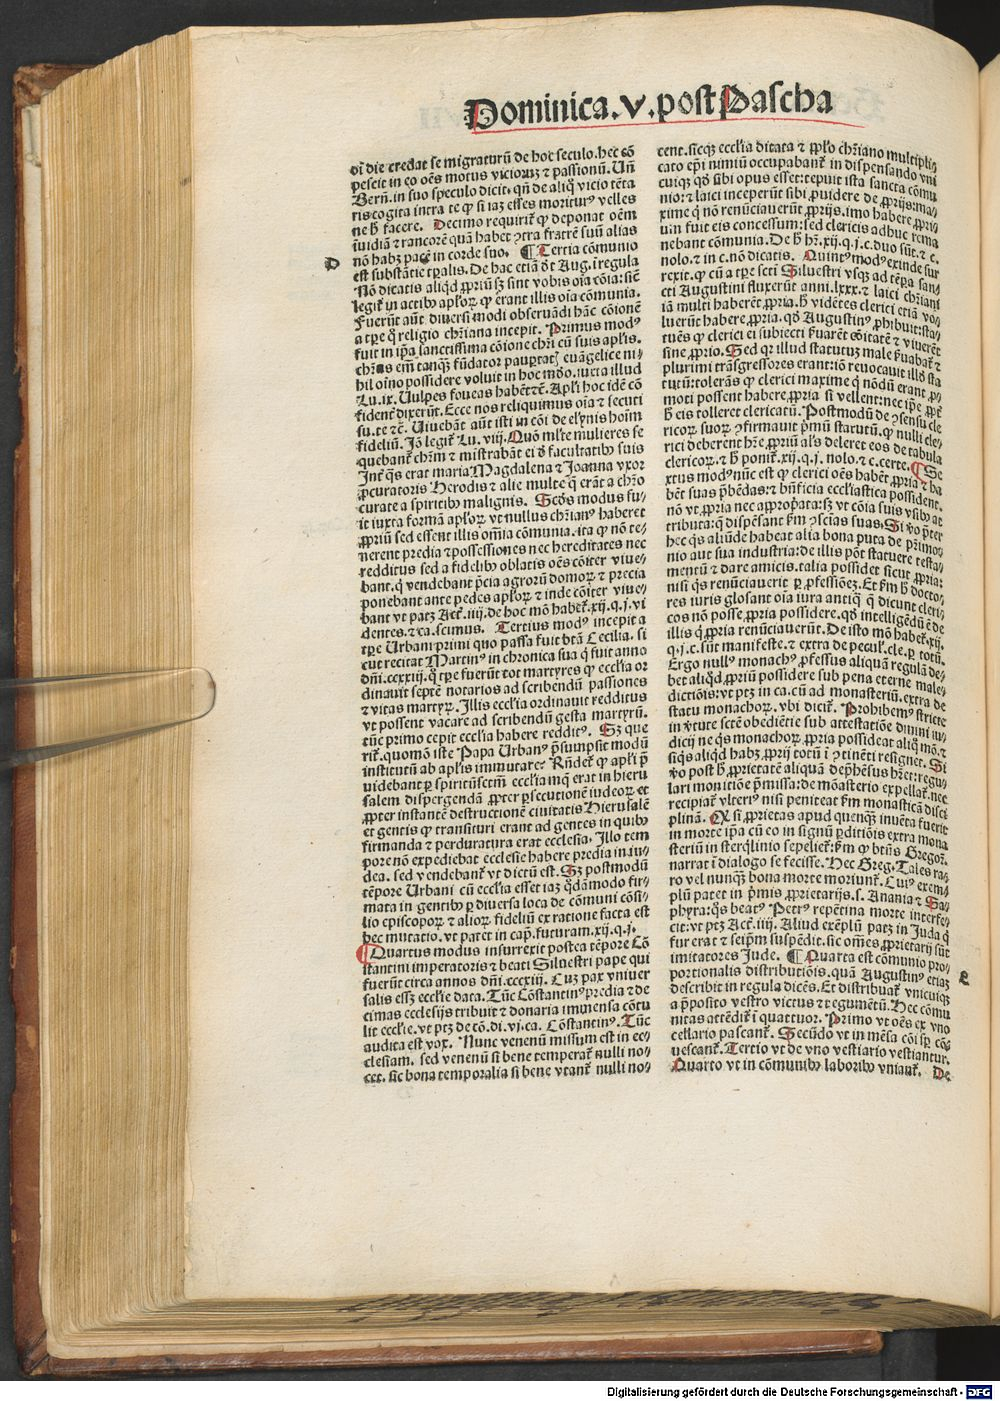 Dominica.v.post Pascha
oī die credat se migraturū de hoc seculo. hec cō
pescit in eo oēs motus vicioꝝ ⁊ passionū. Un̄
Bern̄. in suo speculo dicit. qn̄ de aliq̊ vicio tēta
ris cogita intra te ꝙ si iaꝫ esses moriturꝰ velles
ne h̄ facere. Decimo requirit̄ ꝙ deponat oēm
īuidiā ⁊ rancorē quā habet ꝯtra fratrē suū alias
nō habꝫ pacē in corde suo. ¶ Tertia cōmunio
D
est substātie tꝑalis. De hac etiā dt̄ Aug. ī regula
Nō dicatis aliqd ꝓpriū sꝫ sint vobis oīa cōia: sic̄
legit̄ in actibꝰ apl'oꝝ ꝙ erant illis oīa cōmunia.
Fuerūt aūt diuersi modi obseruādi hāc cōionē
a tꝑe q̊ religio chr̄iana incepit. Primus modꝰ
fuit in ip̄a sanctissima cōione chr̄i cū suis apl'is.
chr̄us em̄ tanꝙ fūdator paupertatꝭ euāgelice ni-
hil oīno possidere voluit in hoc mūdo. iuxta illud
Lu. ix. Uulpes foueas habēt ⁊c̄. Apl'i hoc idē cō
fident̄ dixerūt. Ecce nos reliquimus oīa ⁊ secuti
su. te ⁊c̄. Uiuebāt aūt isti in cōi de elynis hoīm
fideliū. Iō legit̄ Lu. viij. Quō ml'te mulieres se
quebant̄ chr̄m ⁊ mistrabāt ei d̄ facultatibꝰ suis
Int̄ q̄s erat maria Magdalena ⁊ Ioanna vxor
ꝓcuratoris Herodis ⁊ alie multe q̄ erāt a chr̄o
curate a spiritibꝰ malignis. Scd̄s modus fu-
it iuxta formā apl'oꝝ vt nullus chr̄ianꝰ haberet
ꝓpriū sed essent illis om̄ia cōmunia. ita ꝙ nō te-
nerent predia ⁊ possessiones nec hereditates nec
redditus sed a fidelibꝰ oblatis oēs cōiter viue-
bant. q̄ vendebant p̄cia agrorū domoꝝ ⁊ precia
ponebant ante pedes apl'oꝝ ⁊ inde cōiter viue-
bant vt patꝫ Act̄. iiij. de hoc mō habet̄. xij. q. j. vi
dentes. ⁊ ca. scimus. Tertius modꝰ incepit a
tꝑe Urbani primi quo passa fuit btā Cecilia. si
cut recitat Martinꝰ in chronica sua q̄ fuit anno
dn̄i. ccxxiij. q̊ tꝑe fuerūt tot martyres ꝙ ecclīa or
dinauit septē notarios ad scribendū passiones
⁊ vitas martyꝝ. Illis ecclīa ordinauit redditus
vt possent vacare ad scribendū gesta martyrū.
tūc primo cepit ecclīa habere redditꝰ. Sꝫ que
rit̄. quomō iste Papa Urbanꝰ p̄sumpsit modū
institutū ab apl'is immutare? Rn̄det̄ ꝙ apl'i p̄
uidebant ꝑ spiritūsctm̄ ecclīa mq̄ erat in hieru
salem dispergendā ꝓpter ꝑsecutionē iudeoꝝ et
ꝓpter instantē destructionē ciuitatis Hierusalē
et gentis ꝙ transituri erant ad gentes in quibꝰ
firmanda ⁊ perduratura erat ecclesia. Illo tem
pore nō expediebat ecclesie habere predia in iu-
dea. sed vendebant̄ vt dictū est. Sꝫ postmodū
tēpore Urbani cū ecclīa esset iaꝫ q̊dāmodo fir-
mata in gentibꝰ ꝑ diuersa loca de cōmuni cōsi-
lio episcopoꝝ ⁊ alioꝝ fideliū ex ratione facta est
hec mutatio. vt patet in cap̄. futuram. xij. q. j.
¶ Quartus modus insurrexit postea tēpore Cō
stantini imperatoris ⁊ beati Siluestri pape qui
fuerūt circa annos dn̄i. cccxiij. Cuꝫ pax vniuer
salis essꝫ ecclīe data. Tūc Cōstantinꝰ predia ⁊ de
cimas ecclesijs tribuit ⁊ donaria immensa cōtu
lit ecclīe. vt ptꝫ de cō. di. vj. ca. Cōstantinꝰ. Tūc
audita est vox. Nunc venenū missum est in ec-
clesiam. sed venenū si bene temperat̄ nulli no-
cet. sic bona temporalia si bene vtant̄ nulli no-
cent. sicqꝫ ecclīa ditata ⁊ ppl'o chr̄iano multipli-
cato ep̄i nimiū occupabant̄ in dispensando vni
cuiqꝫ qd̄ sibi opus esset: tepuit ista sancta cōmu
nio: ⁊ laici inceperūt sibi ꝓuidere de ꝓprijs: ma-
xime q̄ nō renūciauerūt ꝓprijs. imo habere ꝓpri
um fuit eis concessum: sed clericis adhuc rema
nebant cōmunia. De h̄ hr̄. xij. q. j. c. duo sūt. ⁊ c.
nolo. ⁊ in c. nō dicatis. Quintꝰ modꝰ exinde sur
rexit. ꝙ cū a tꝑe scti Siluestri vsqꝫ ad tēpꝰa san-
cti Augustini fluxerūt anni. lxxx. ⁊ laici chr̄iani
iā multi haberēt ꝓpria. h̄ vidētes clerici etiā vo-
luerūt habere ꝓpria. qd̄ Augustinꝰ ꝓhibuit: sta-
tuēs ꝙ clerici ei subiecti ẜuarēt cōitatē ⁊ viuerēt
sine ꝓprio. Sed qr illud statutuꝫ male ẜuabat̄ ⁊
plurimi trāsgressores erant: iō reuocauit illd̄ sta
tutū: tolerās ꝙ clerici maxime q̄ nōdū erant ꝓ-
moti possent habere ꝓpria si vellent: nec ip̄e ꝓpt̄
h̄ eis tolleret clericatū. Postmodū de ꝯsensu cle
ricoꝝ suoꝝ ꝯfirmauit p̄mū statutū. ꝙ nulli cle-
rici deberent hr̄e ꝓpriū al's deleret eos de tabula
clericoꝝ. ⁊ h̄ ponit̄. xij. q. j. nolo. ⁊ c. certe. ¶ Se
xtus modꝰ nūc est ꝙ clerici oēs habēt ꝓpria ⁊ ha
bēt suas p̄bēdas: ⁊ bn̄ficia ecclīastica possident.
nō vt ꝓpria nec apropr̄ata: sꝫ vt cōia suis vsibꝰ at
tributa: q̄ dispēsant ẜm ꝯsciās suas. Si v̊o p̄ter
hec q̄s aliūde habeat alia bona puta de p̄rimo-
nio aut sua industria: de illis pōt statuere testa-
mentū ⁊ dare amicis. talia possidet sicut ꝓpria:
nisi q̄s renūciauerit ꝑ ꝓfessionēꝫ. Et ẜm h̄ docto-
res iuris glosant oīa iura antiq̄ q̄ dicunt cleri-
cos nō posse ꝓpria possidere. qd̄ intelligēdū ē de
illis q̄ ꝓpria renūciauerūt. De isto mō habet̄. xij.
q. j. c. sūt manifeste. ⁊ extra de pecul'. cle. ꝑ totū.
Ergo nullꝰ monachꝰ ꝓfessus aliquā regulā de-
bet aliqd̄ ꝓpriū possidere sub pena eterne male-
dictiōis. vt ptꝫ in ca. cū ad monasteriū. extra de
statu monachoꝝ. vbi dicit̄. Prohibemꝰ stricte
in v̊tute sctē obediētie sub attestatiōe diuini iu-
dicij ne q̄s monachoꝝ ꝓpria possideat aliq̊ mō. ⁊
siq̄s aliqd̄ habꝫ ꝓprij totū ī ꝯtinēti resignet. Si
v̊o post h̄ ꝓprietatē aliquā dep̄hēsus hr̄et: regu-
lari monitiōe p̄missa: de mōasterio expellat̄. nec
recipiat̄ vlteriꝰ nisi peniteat ẜm monasticā disci
plinā. Qd̄ si ꝓprietas apud quenqꝫ inuēta fuerit
in morte ip̄a cū eo in signū ꝑditiōis extra mona
steriū in sterq̊linio sepeliet̄: ẜm ꝙ btūs Gregoꝝ.
narrat ī dialogo se fecisse. Hec Greg. Tales ra-
ro vel nunqꝫ bona morte moriunt̄. Cuiꝰ exem-
plū patet in p̄mis ꝓprietarijs. s. Anania ⁊ Sa-
phyra: q̊s beatꝰ Petrꝰ repētina morte interfe-
cit: vt ptꝫ Act̄. iiij. Aliud exēplū patꝫ in Juda q̊
fur erat ⁊ seip̄m suspēdit. sic om̄es ꝓprietarij sūt
imitatores Jude. ¶ Quarta est cōmunio pro-
portionalis distributiōis. quā Augustinꝰ etiaꝫ
E
describit in regula dicēs. Et distribuat̄ vnicuiqꝫ
a p̄posito vestro victus ⁊ tegumētū. Hec cōmu
nitas attēdit̄ ī quattuor. Primo vt oēs ex vno
cellario pascant̄. Secūdo vt in mēsa cōi sꝑ cō-
uescant̄. Tertio vt de vno vestiario vestiantur.
Quarto vt in cōmunibꝰ laboribꝰ vniant̄. De
Digitalisierung gefördert durch die Deutsche Forschungsgemeinschaft - DFG